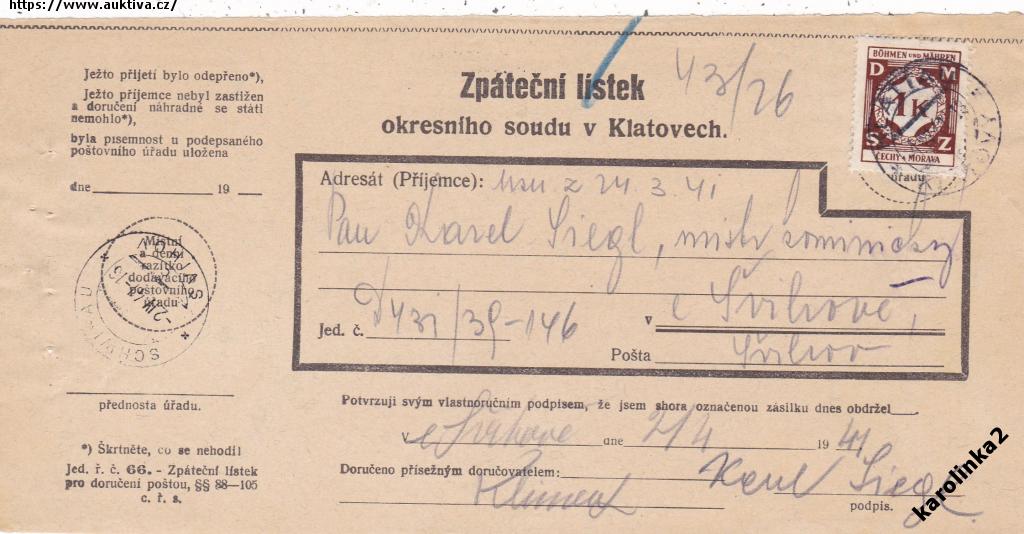 https://www.auktiva.cz/
Ježto přijetí bylo odepřeno*),
Ježto příjemce nebyl zastižen
a doručení náhradné se státi
nemohlo*),
byla písemnost u podepsaného
poštovního úřadu uložena
dne 19
Místní
a denní
razítko
dodávacího
poštovního
úřadu
SCHWIHAU
přednosta úřadu.
*) Škrtněte, co se nehodí
Jed. ř. č. 66. - Zpáteční lístek
pro doručení poštou, §§ 88—105
c. ř. s.
Zpáteční lístek
43/26
okresního soudu v Klatovech.
BÖHMEN UND MÄHREN
D M
1K
S Z
ČECHY A MORAVA
úřadu
Adresát (Příjemce): usn z 24.3.41
Pan Karel Siegl, mistr kominický
v Švihově,
Jed. č. D 431/39-146
Pošta Švihov
Potvrzuji svým vlastnoručním podpisem, že jsem shora označenou zásilku dnes obdržel
v Švihově dne 2/4 1941
Doručeno přísežným doručovatelem:
Karel Siegl
podpis.
karolinka2